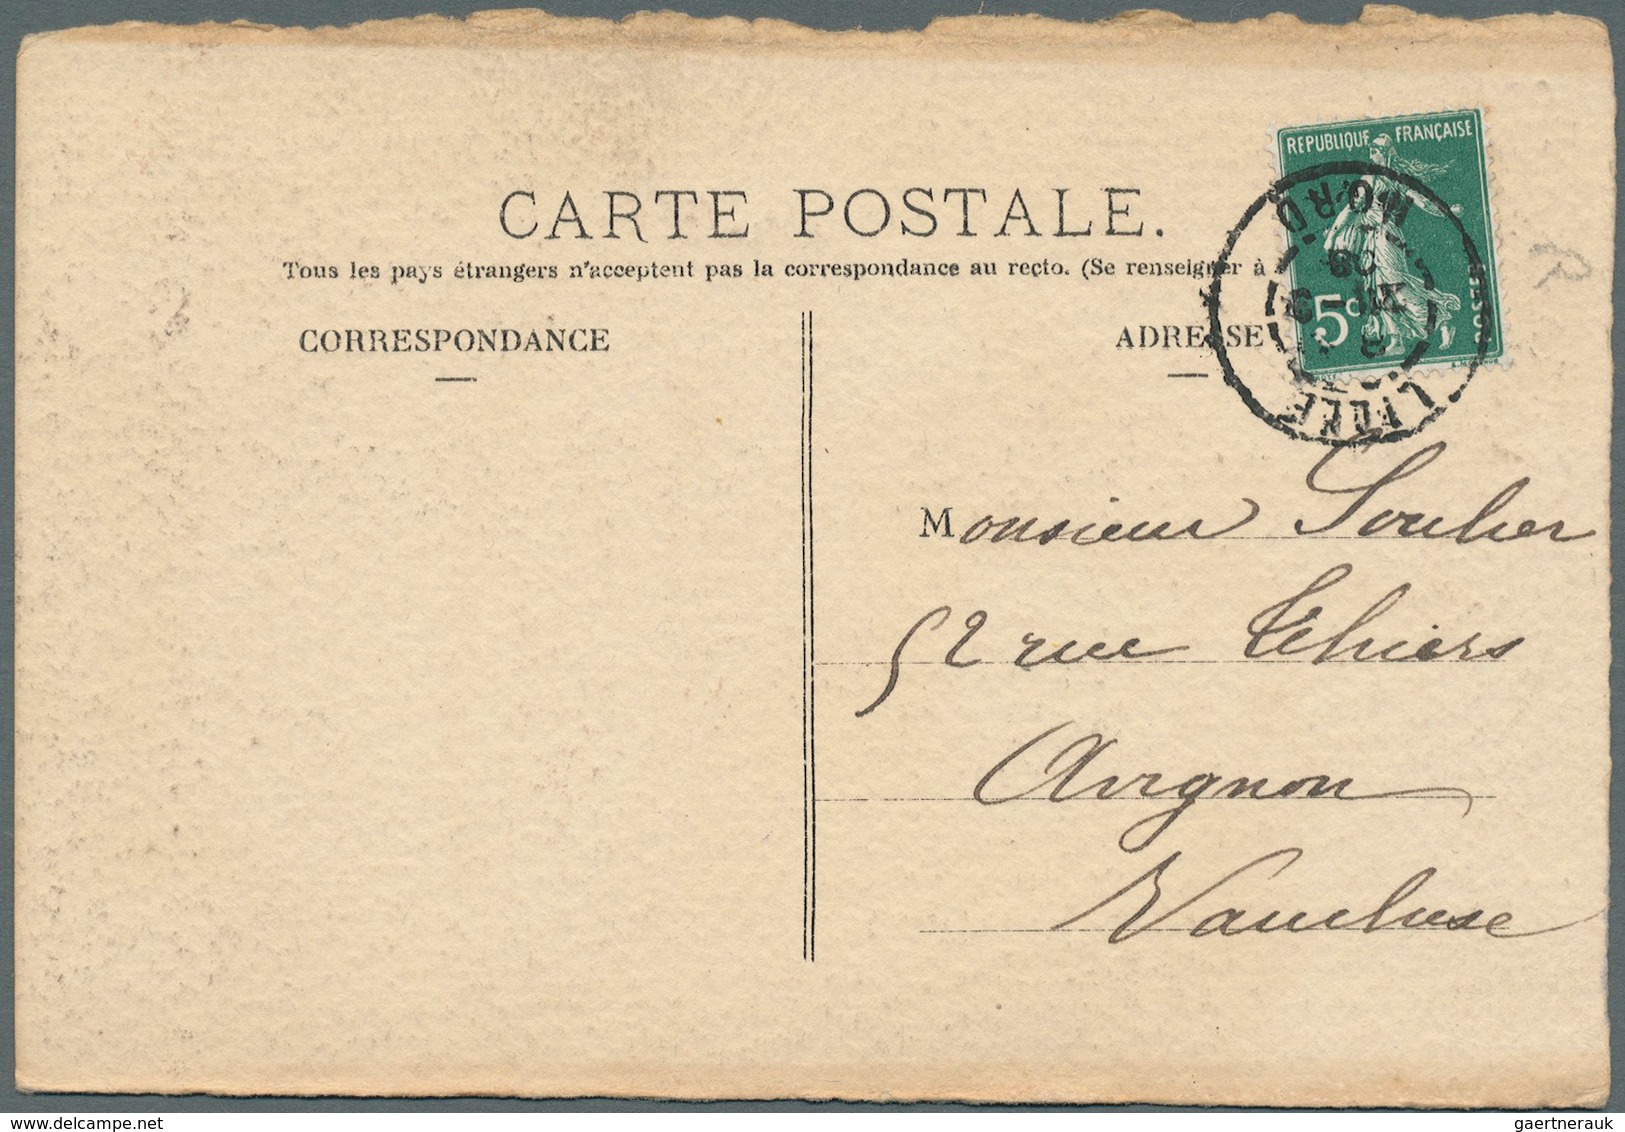 CARTE POSTALE.
Tous les pays étrangers n'acceptent pas la correspondance au recto. (Se renseigner à
CORRESPONDANCE
ADRESSE
REPUBLIQUE FRANÇAISE
POSTES
5c
LILLE
NORD
09
Monsieur Soulier
52 rue Thiers
Avignon
Vaucluse
gaertnerauk